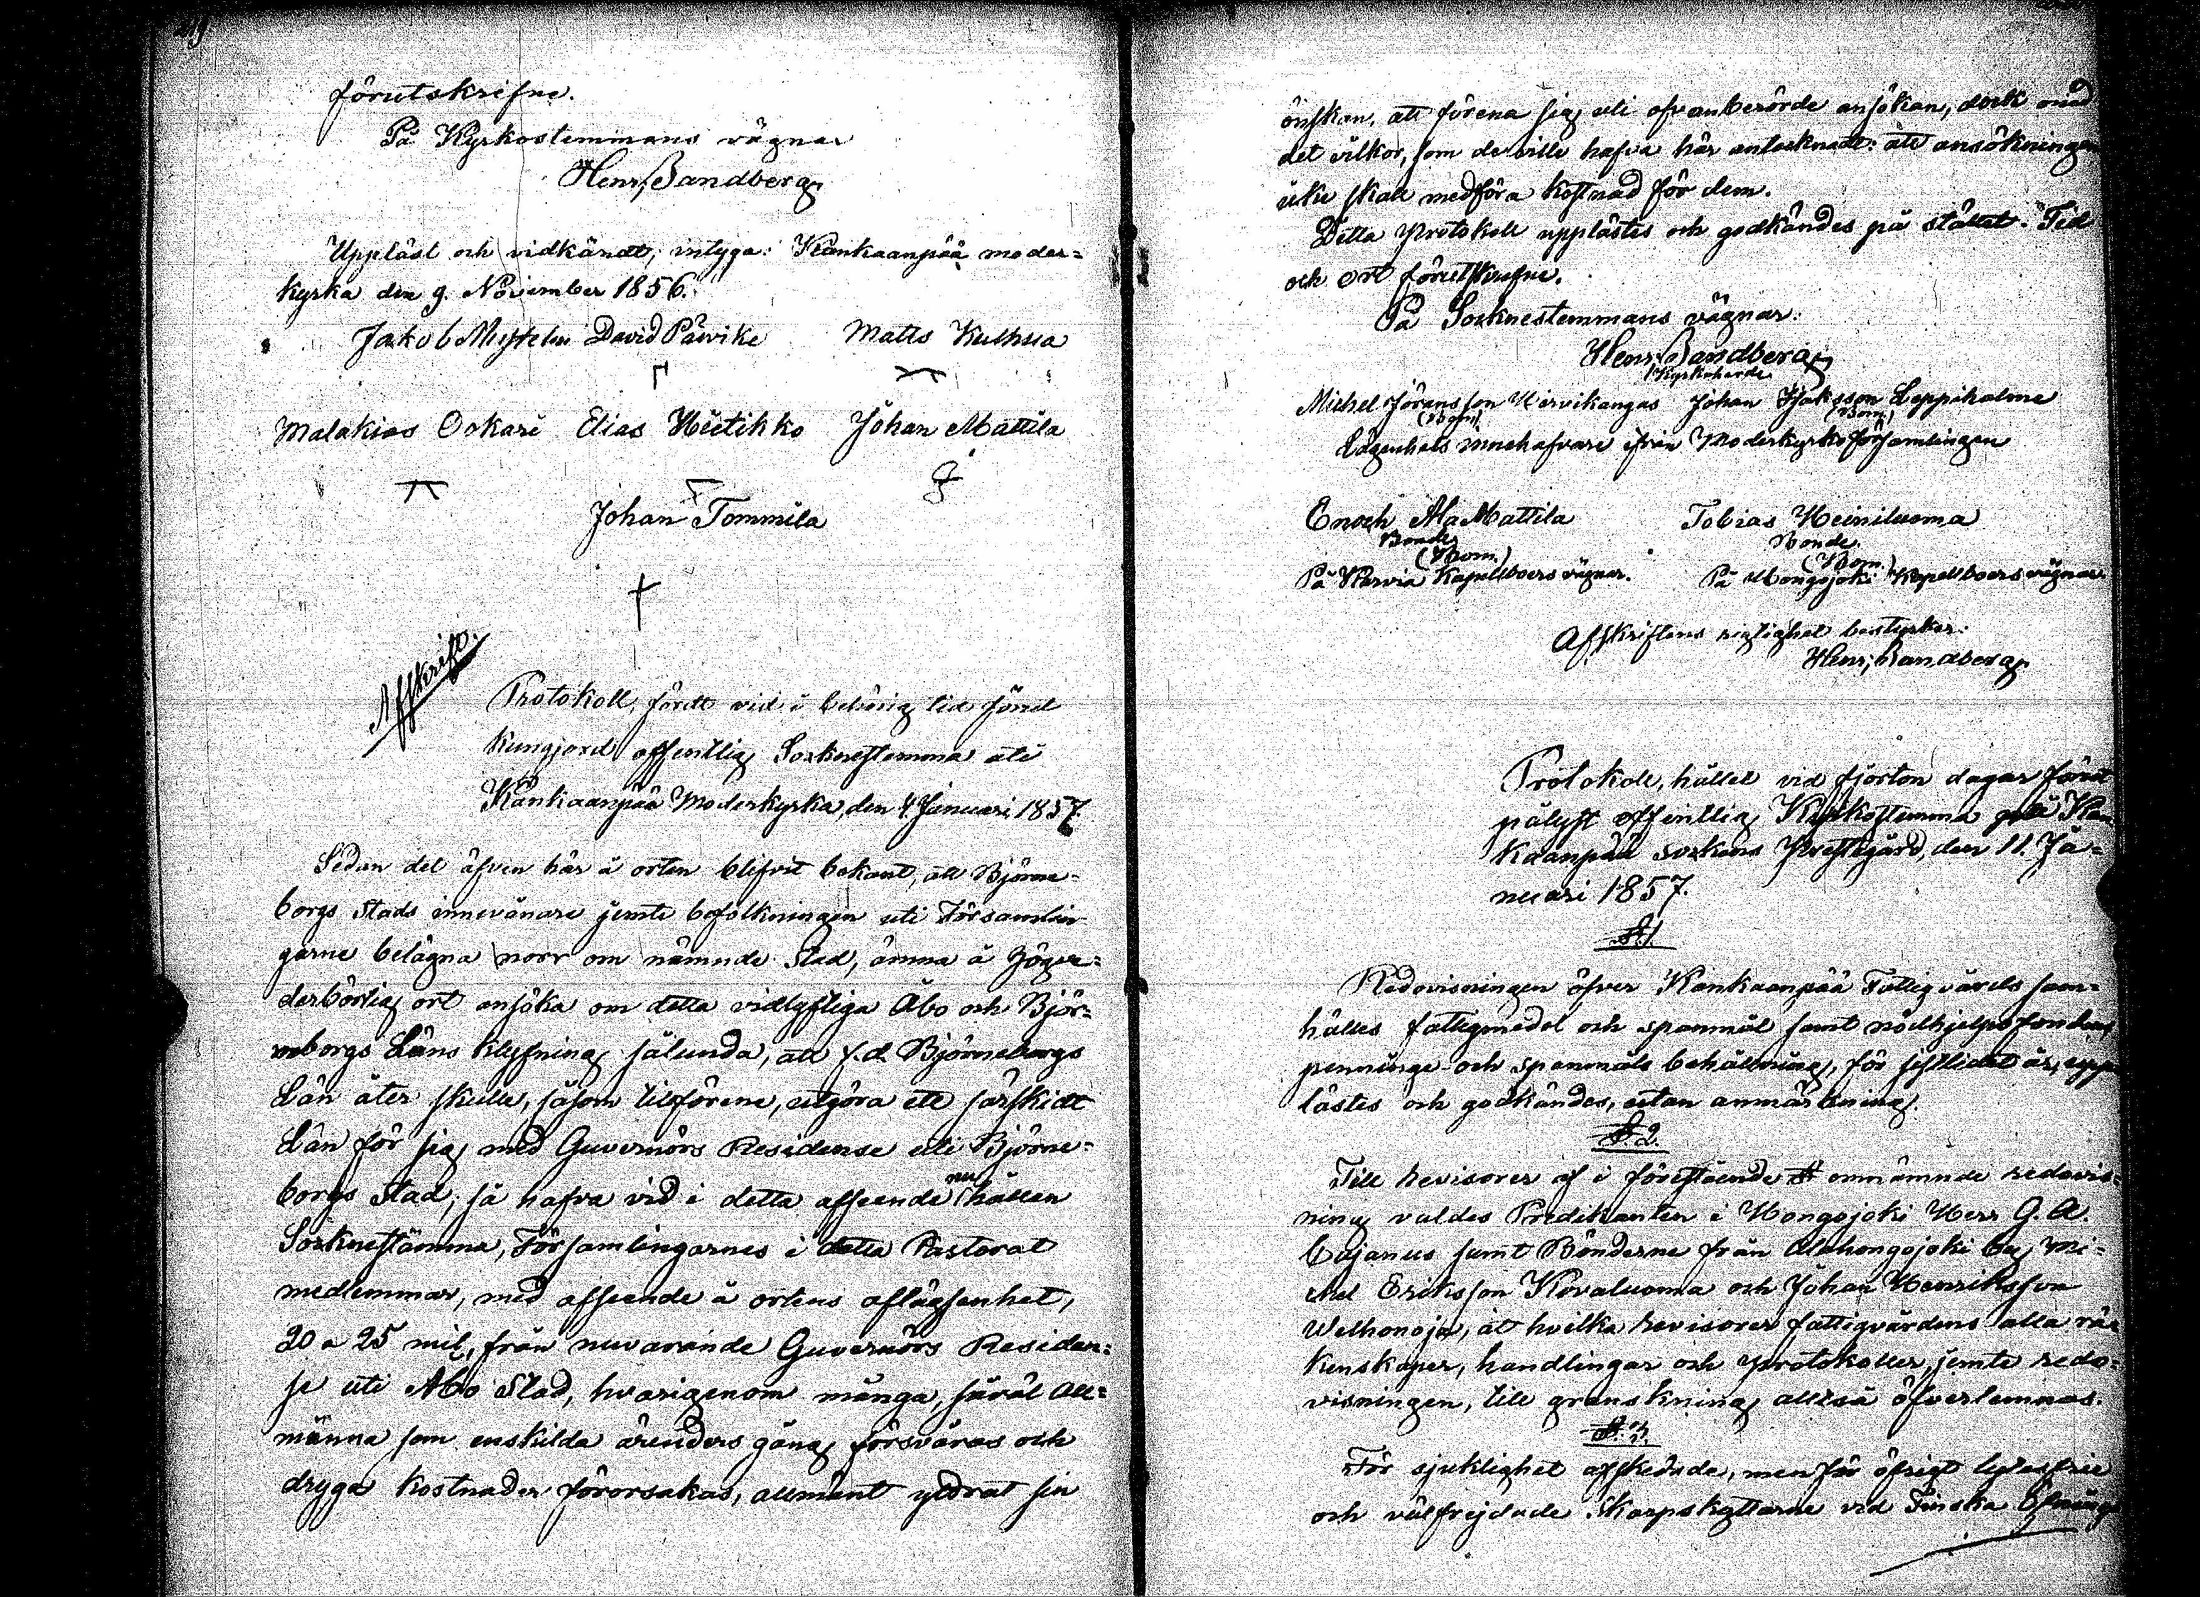 förutskrifne.
På Kyrkostemmans vägnar
Henr. Sandberg
Uppläst och vidkändt, intyga: Kankaanpää moder=
kyrka den 9. November 1856.
Jakob David Päivike Matts
Malakias Elias Hietikko Johan Mattila
Johan Tommila
Afskrift.
Protokoll, fördt vid i behörig tid förut
kungjord offentlig Socknestemma uti
Kankaanpää Moderkyrka, den 4. Januari 1857.
Sedan det äfven här å orten blifvit bekant, att Björne=
borgs Stads innevånare jemte befolkningen uti Församlin-
garne belägna norr om nämnde Stad, ämna å höge=
derbörlig ort ansöka om detta vidlyftiga Åbo och Björ=
neborgs Läns klyfning sålunda, att f.d. Björneborgs
Län åter skulle, såsom tillförene, utgöra ett särskidt
Län för sig med Guvernörs Residense uti Björne=
borgs Stad, så hafva vid i detta afseende nu hållen
Sockneståmma, Församlingarnes i detta Pastorat
medlemmar, med afseende å ortens aflägsenhet,
20 a 25 mil, från nuvarande Guvernörs Residen=
se uti Åbo Stad, hvarigenom många, såväl all=
männa som enskilda ärenders gång försvåras och
dryga kostnader förorsakas, allmänt yttrat sin
önskan, att förena sig uti ofvanberörde ansökan, dock med
det vilkor, som de ville hafva här antecknadt: att ansökningen
icke skall medföra kostnad för dem.
Detta Protokoll upplästes och godkändes på stället. Tid
och ort förutskrifne.
På Socknestemmans vägnar:
Henr. Sandberg
Kyrkoherde
Michel Göransson Johan Leppiholme
(Bom.) (Bom.)
Lägenhets innehafvare från Moderkyrkoförsamlingen
Enoch AlaMattila Tobias Heiniluoma
Bonde Bonde.
(Bom.) (Bom.)
På Karvia Kapellboers vägnar. På Hongojoki Kapellboers vägnar
Afskriftens rigtighet bestyrker:
Henr. Sandberg
Protokoll, hållet vid fjorton dagar förut
pålyst offentlig Kyrkostemma på Kan
kaanpää sockens Prestegård, den 11. Ja=
nuari 1857.
§.1.
Redovisningen öfver Kankaanpää Fattigvårds sam=
hälles fattigmedel och spanmål samt nödhjelps fondens
penninge- och spanmåls behållning, för sistlidet år, upp
lästes och godkändes, utan anmärkning.
§.2.
Till revisorer af i förestående § omnämnde redovis=
ning valdes Predikanten i Hongojoki Herr G. A.
Cajanus samt Bönderne från Alahongojoki by Mi=
chel Eriksson Kovaluoma och Johan Henriksson
Welhonoja, åt hvilka revisorer fattigvårdens alla rä=
kenskaper, handlingar och protokoller, jemte redo=
visningen, till granskning alltså öfverlemnas.
§.3.
För sjuklighet afskedade, men för öfrigt
och välfrejdade Skarpskyttarne vid Finska